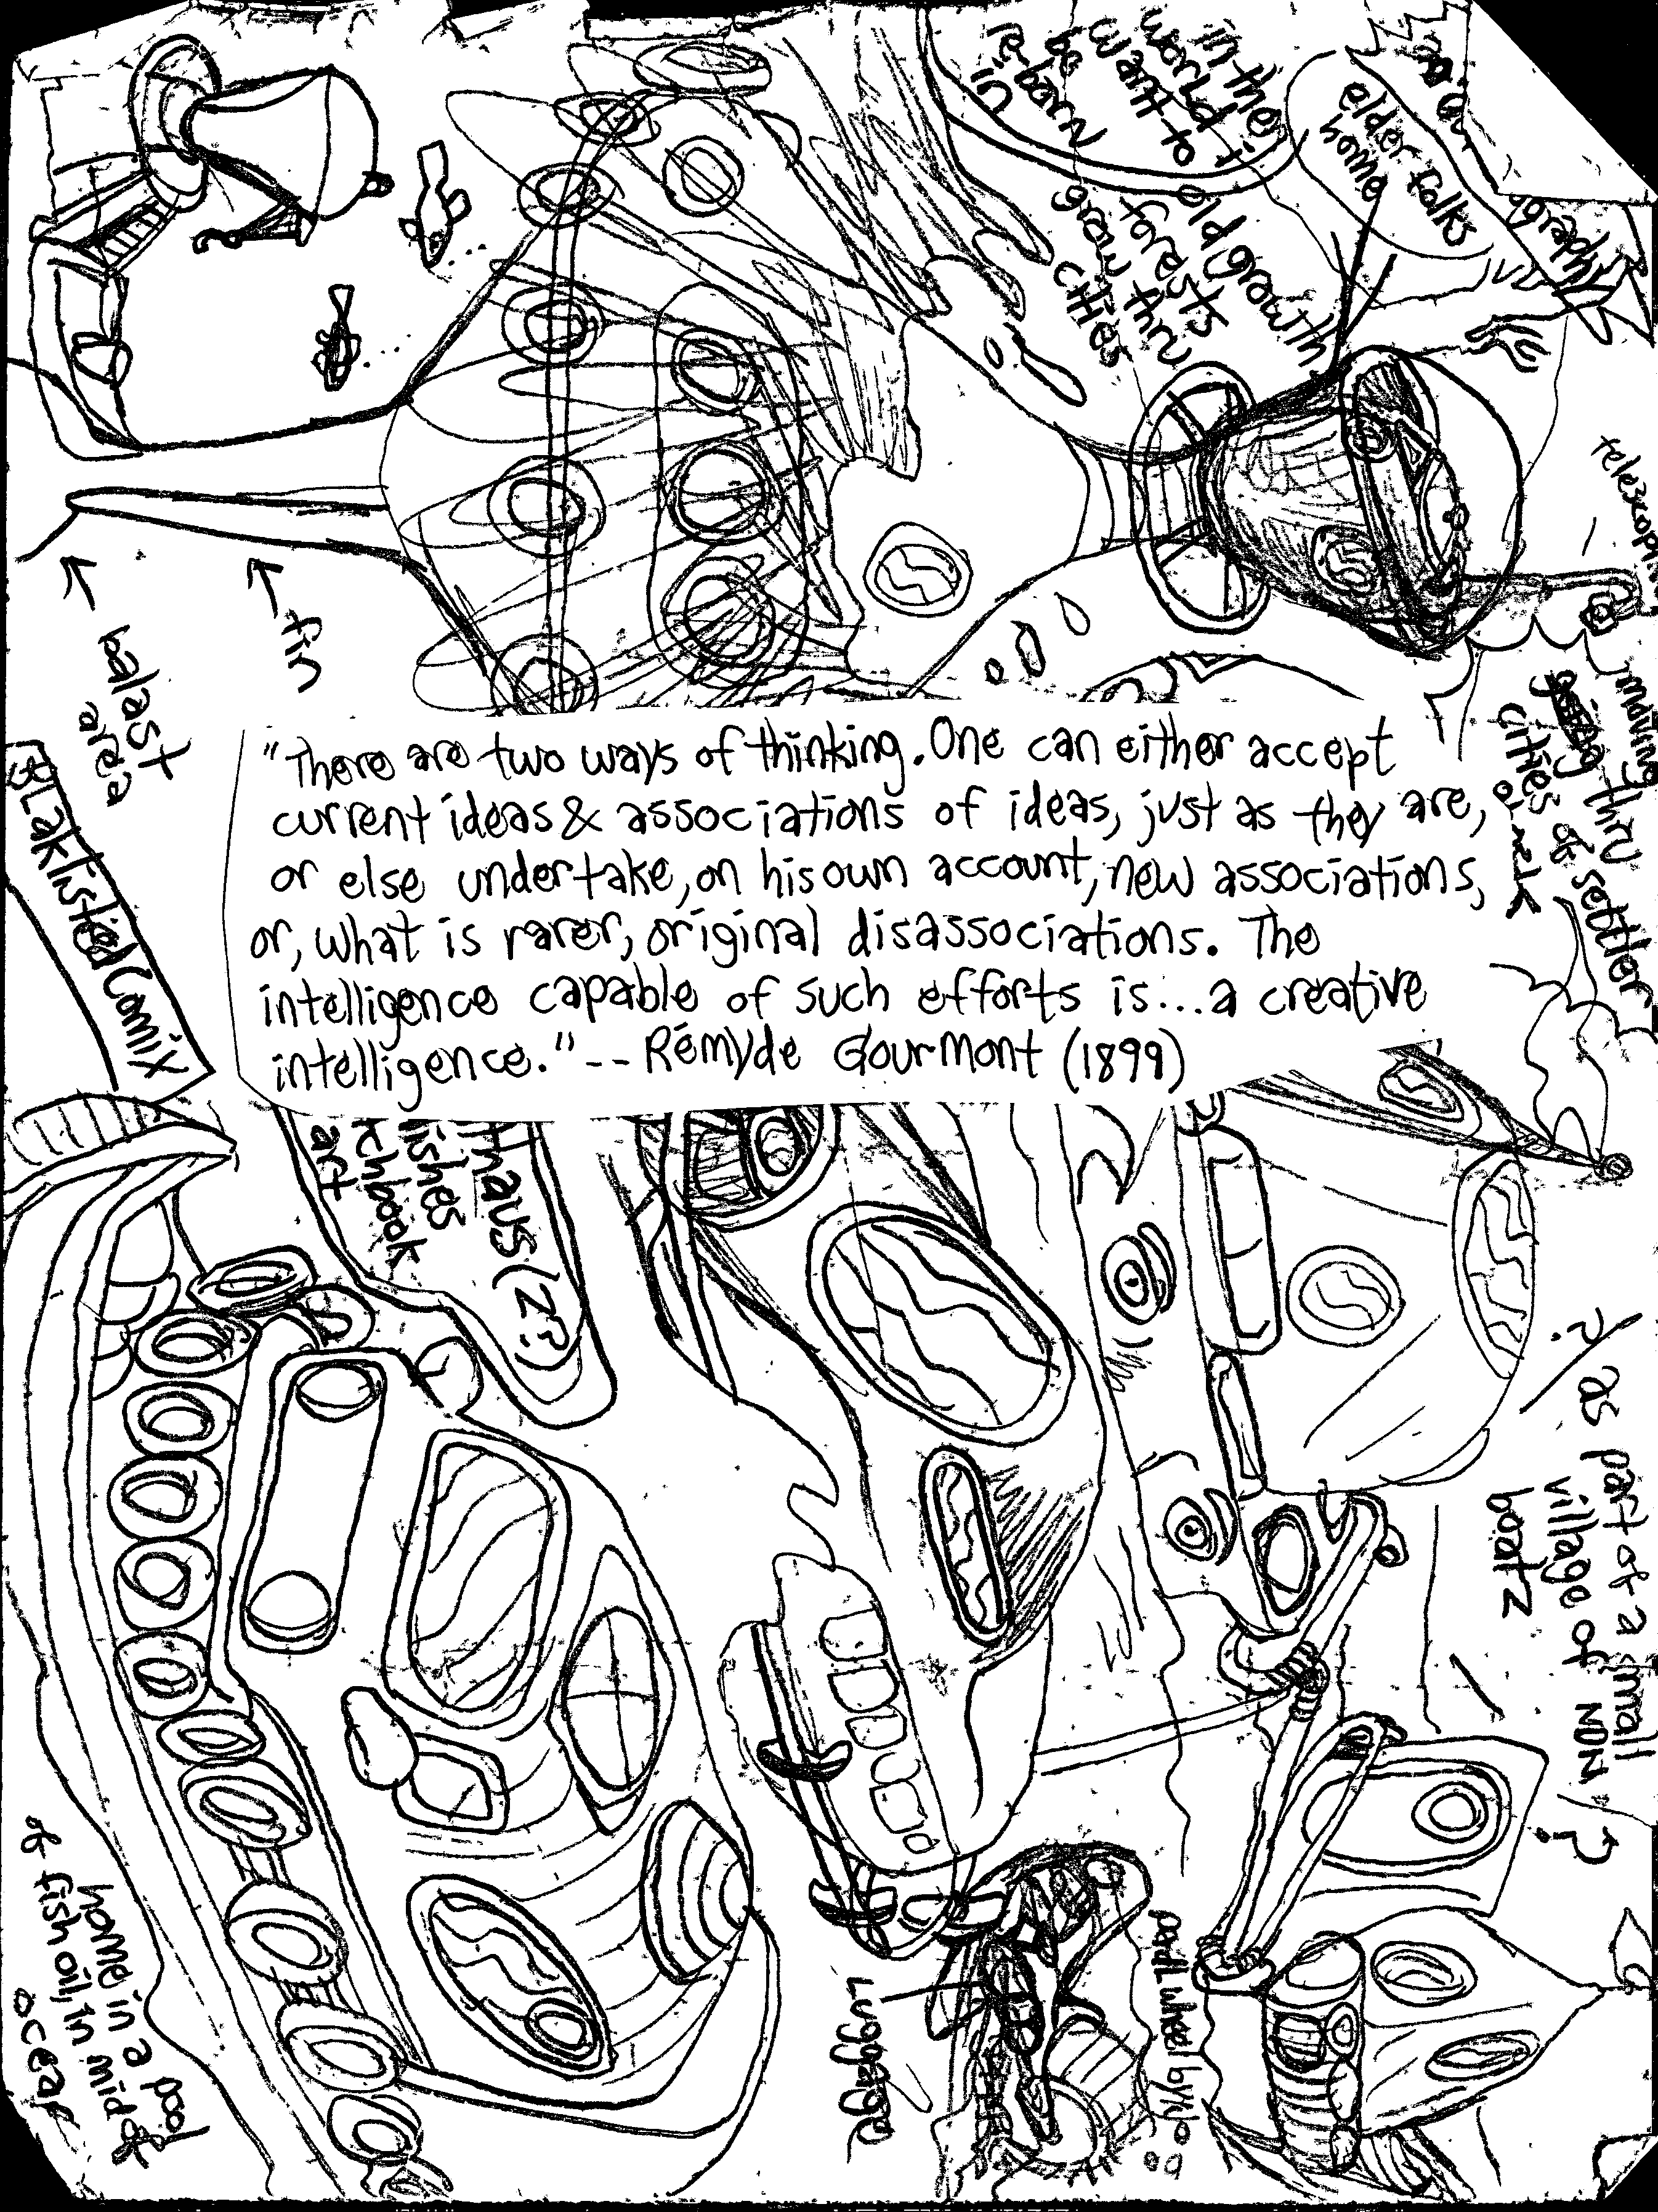 in the
world i
want to
be
re-born
in
elder folks
home
old growth
forests
grow thru
cities
fin
balast
area
BLaktistedComix
"There are two ways of thinking. One can either accept
current ideas & associations of ideas, just as they are,
or else undertake, on his own account, new associations,
or, what is rarer, original disassociations. The
intelligence capable of such efforts is...a creative
intelligence." -- Rémy de Gourmont (1899)
moving
thru
cities of settler
haus(z?)
ishes
tchbook
art
?/ as part of a small
village of NON/?
boatz
home in a pool
of fish oil, in mid of
ocean
Luggage